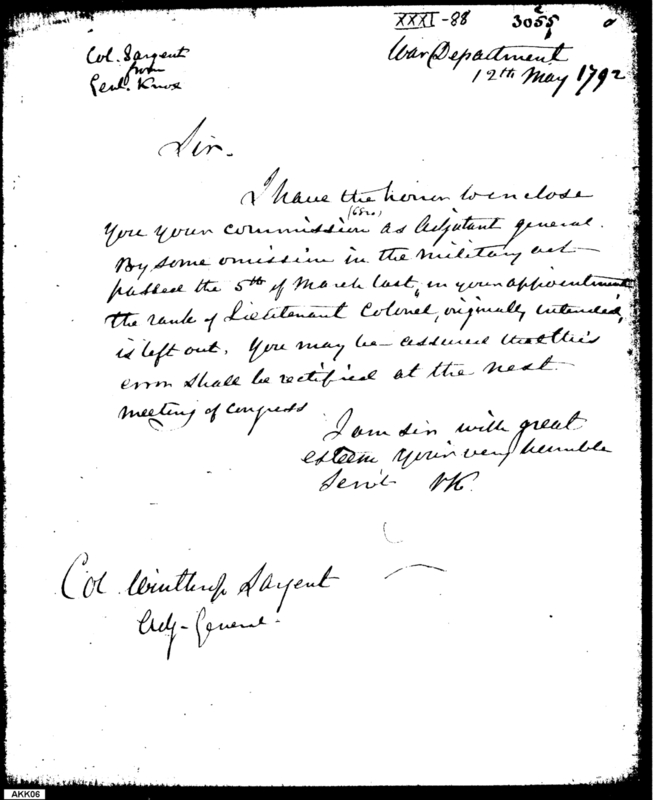 XXXI-88 3055
Col. Sargent
from
Genl. Knox
War Department
12th May 1792
Sir.
I have the honor to enclose
you your commission as Adjutant general.
By some omission in the military act
passed the 5th of March last, in your appointment
the rank of Lieutenant Colonel, originally intended,
is left out. You may be assured that this
error shall be rectified at the next
meeting of Congress
I am sir with great
esteem your very humble
Servt HK.
Col Winthrop Sargent
Adj-General.
AKK06